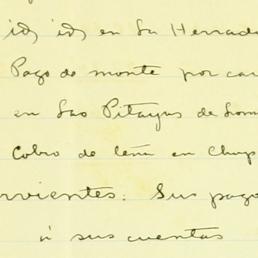 id, id, en La Herrad
Pago de monte por car
en Las Pitayas de Lom
Cobro de leña en Chup
rvientes: Sus pago
n sus cuentas